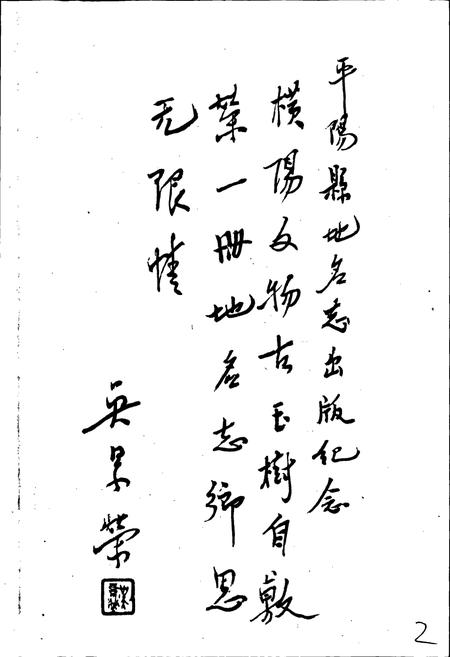 平陽縣地名志出版纪念
橫陽文物古玉樹自敷
榮一冊地名志鄉思
无限情
吴景榮
2